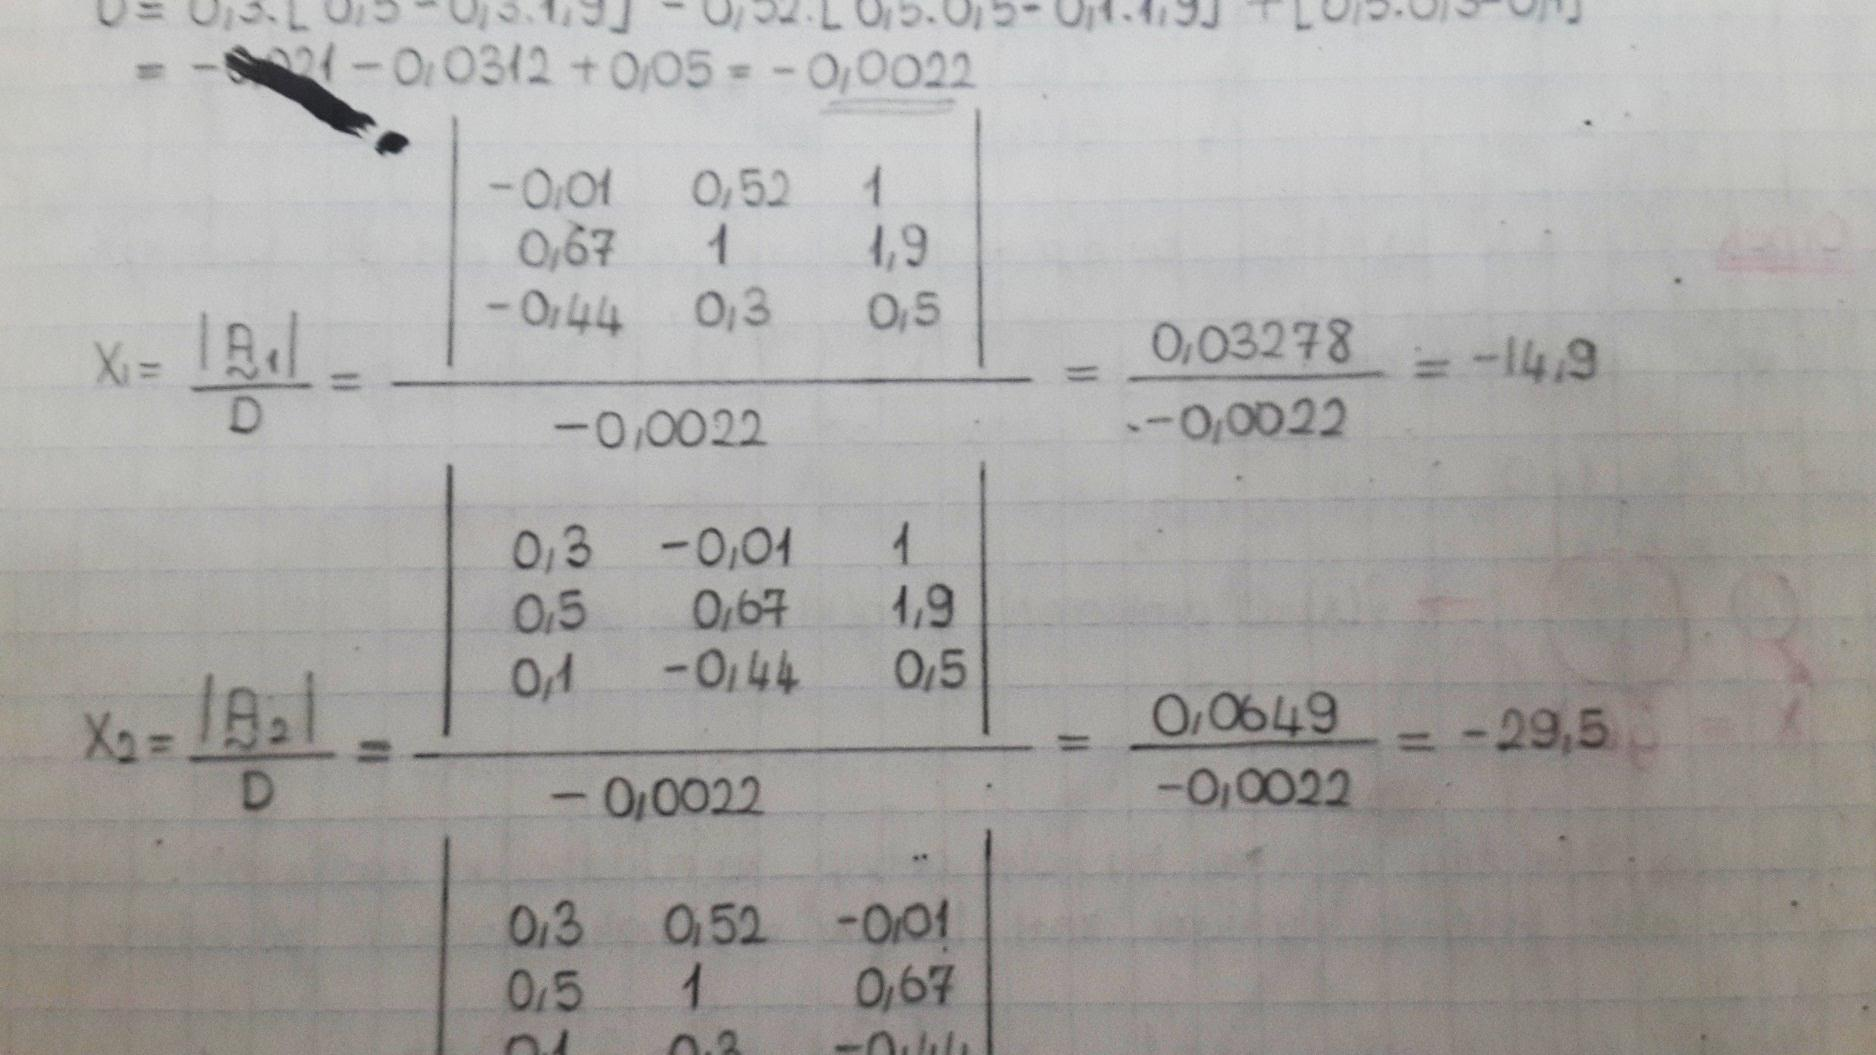 D = 0,3.[0,5-0,3.1,9] - 0,52.[0,5.0,5-0,1.1,9] + [0,5.0,3-0,1]
= - 021 - 0,0312 + 0,05 = - 0,0022
-0,01 0,52 1
0,67 1 1,9
-0,44 0,3 0,5
X1 = |A1| / D = / -0,0022 = 0,03278 / -0,0022 = -14,9
0,3 -0,01 1
0,5 0,67 1,9
0,1 -0,44 0,5
X2 = |A2| / D = / -0,0022 = 0,0649 / -0,0022 = -29,5
0,3 0,52 -0,01
0,5 1 0,67
0,1 0,3 -0,44